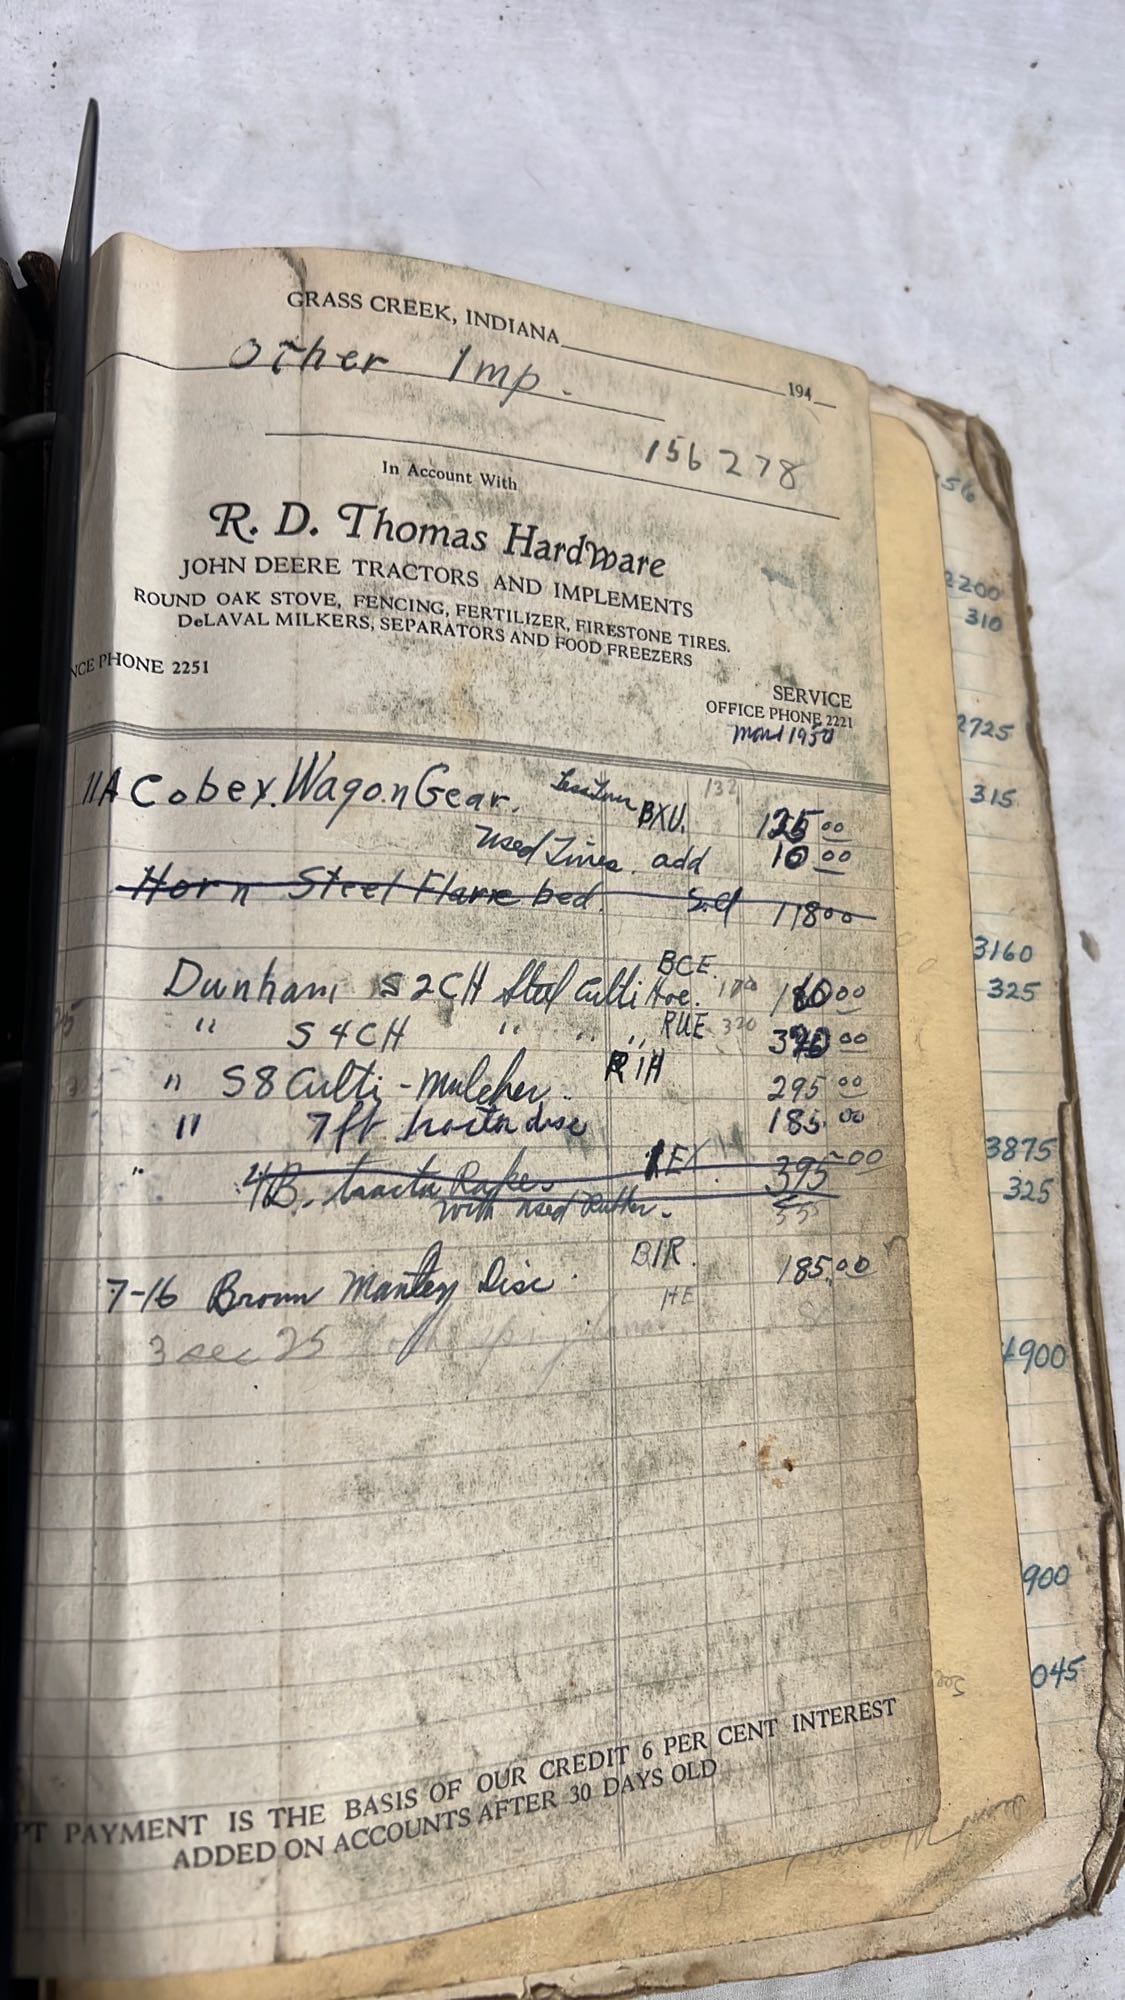 GRASS CREEK, INDIANA 194
Other Imp.
156278
In Account With
R. D. Thomas Hardware
JOHN DEERE TRACTORS AND IMPLEMENTS
ROUND OAK STOVE, FENCING, FERTILIZER, FIRESTONE TIRES.
DeLAVAL MILKERS, SEPARATORS AND FOOD FREEZERS
NCE PHONE 2251
SERVICE
OFFICE PHONE 2221
1950
11A Cobey Wagon Gear. BXU. 132 125 00
Used Tires. add 10 00
Horn Steel Flare bed. 118 00
Dunham S2CH Steel Culti Hoe. BCE. 160 00
" S4CH " " " RUE. 320 00
" S8 Culti-Mulcher RIH 295 00
" 7ft tractor disc 185.00
" 4B. tractor Rakes EX 395 00
with used Rubber.
7-16 Brown Manley Disc BIR. 185.00
3 sec 25 HE
PT PAYMENT IS THE BASIS OF OUR CREDIT 6 PER CENT INTEREST
ADDED ON ACCOUNTS AFTER 30 DAYS OLD
56
2200
310
2725
315
3160
325
3875
325
4900
900
045